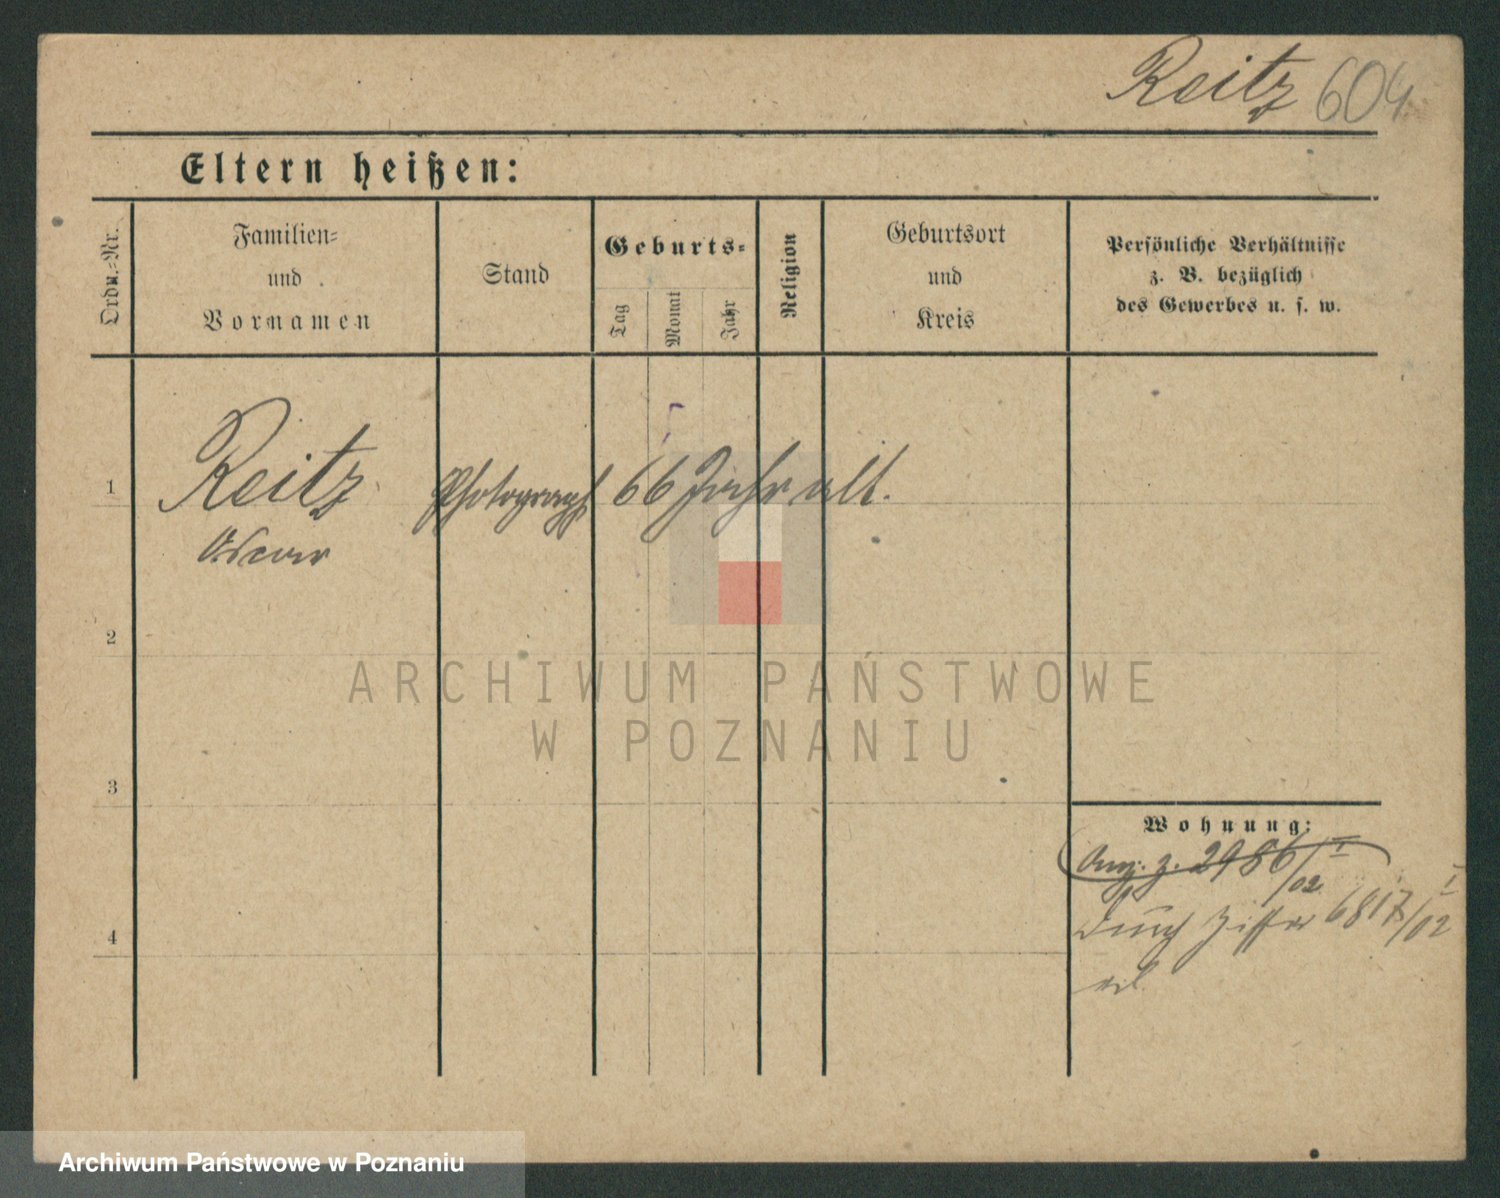 Reitz 604
Eltern heißen:
Ordn.-Nr.
Familien-
und
Vornamen
Stand
Geburts-
Tag
Monat
Jahr
Religion
Geburtsort
und
Kreis
Persönliche Verhältnisse
z. B. bezüglich
des Gewerbes u. s. w.
1
Reitz Photograph 66 Jahr alt.
Oscar
2
3
4
Wohnung:
Anz. z. 2986/02 I
Durch Ziffer 6817/02 I
ARCHIWUM PAŃSTWOWE
W POZNANIU
Archiwum Państwowe w Poznaniu